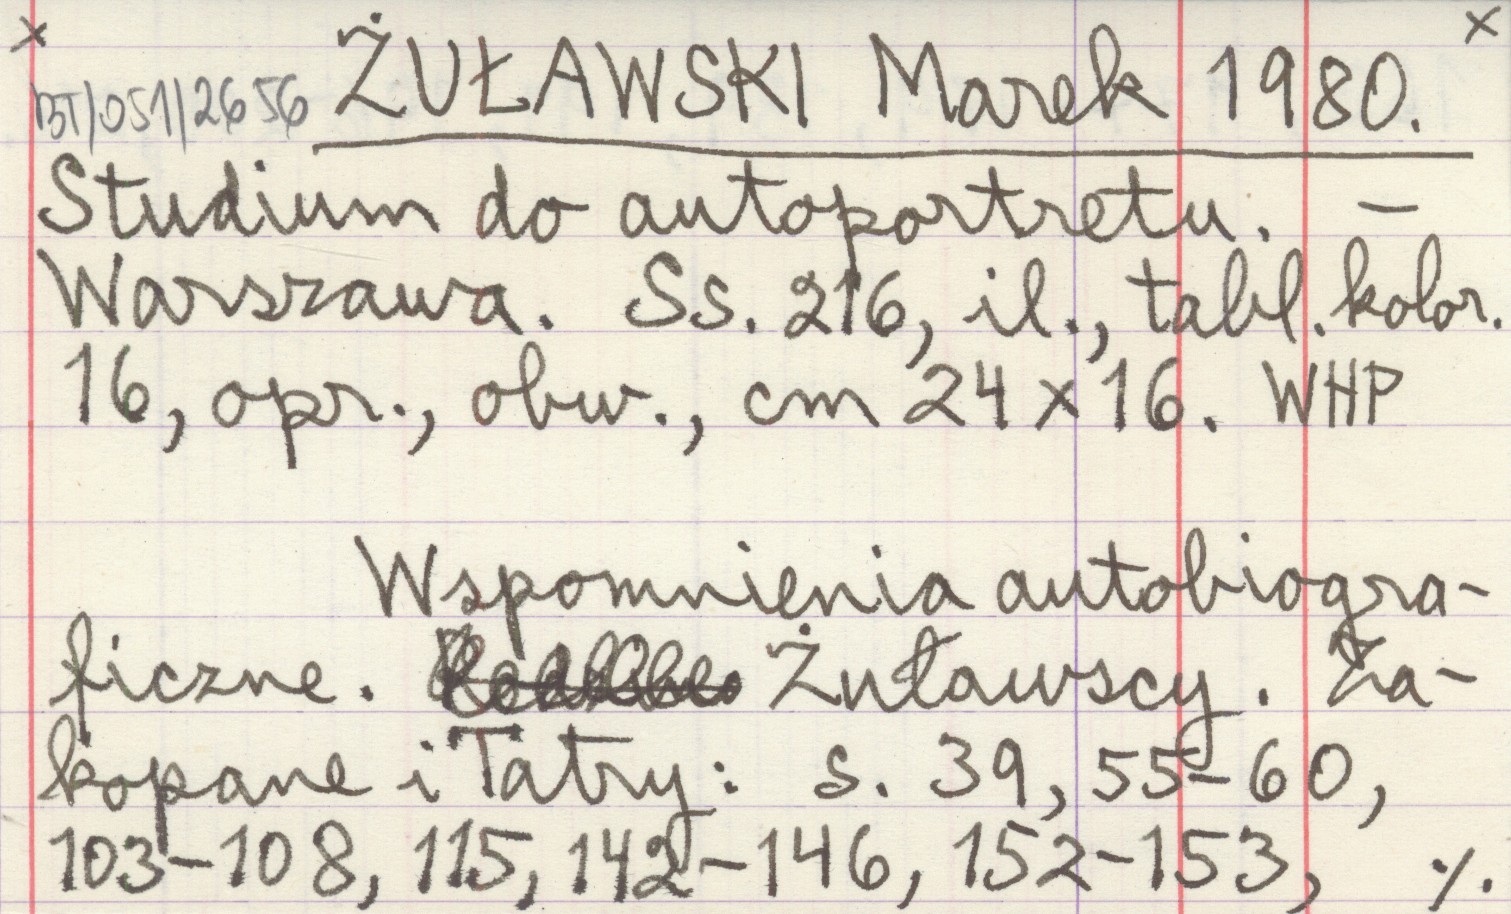 x x
BT/051/2656 ŻUŁAWSKI Marek 1980.
Studium do autoportretu. –
Warszawa. Ss. 216, il., tabl. kolor.
16, opr., obw., cm 24 x 16. WHP
Wspomnienia autobiogra-
ficzne. Żuławscy. Za-
kopane i Tatry: s. 39, 55-60,
103-108, 115, 142-146, 152-153, ./.